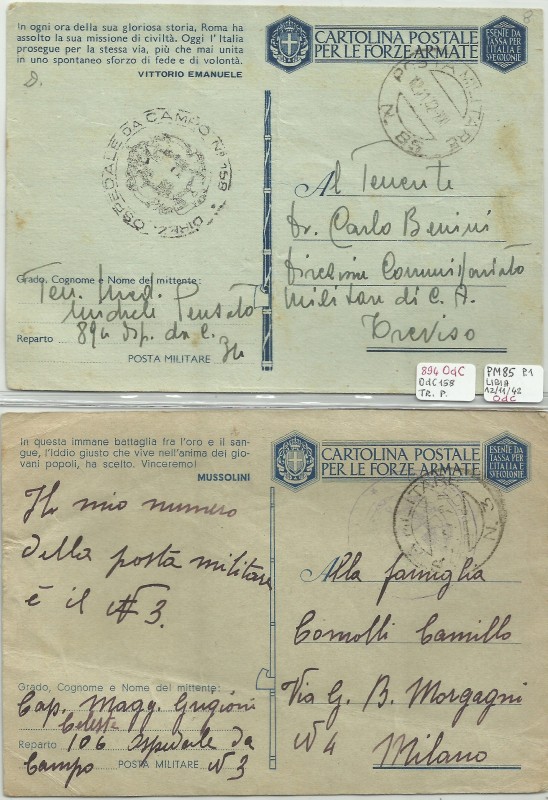 In ogni ora della sua gloriosa storia, Roma ha
assolto la sua missione di civiltà. Oggi l'Italia
prosegue per la stessa via, più che mai unita
in uno spontaneo sforzo di fede e di volontà.
VITTORIO EMANUELE
CARTOLINA POSTALE
PER LE FORZE ARMATE
ESENTE DA
TASSA PER
L'ITALIA E
SUE COLONIE
POSTA MILITARE
N. 58
DIREZ. OSPEDALE DA CAMPO N° 158
Al Tenente
Dr. Carlo Benini
Direzione Commissariato
Militare di C. A.
Treviso
Grado, Cognome e Nome del mittente:
Ten. Med.
Michele
Reparto 894 Osp. da C.
POSTA MILITARE
894 OdC
OdC 158
TR. P.
PM85 P1
LIBIA
12/11/42
OdC
In questa immane battaglia fra l'oro e il san-
gue, l'Iddio giusto che vive nell'anima dei gio-
vani popoli, ha scelto. Vinceremo!
MUSSOLINI
CARTOLINA POSTALE
PER LE FORZE ARMATE
ESENTE DA
TASSA PER
L'ITALIA E
SUE COLONIE
MILITARE
N. 3
Il mio numero
della posta militare
è il N 3.
Alla famiglia
Comolli Camillo
Via G. B. Morgagni
N 4 Milano
Grado, Cognome e Nome del mittente:
Cap. Magg. Grigioni
Celeste
Reparto 106 Ospedale da
Campo POSTA MILITARE N 3